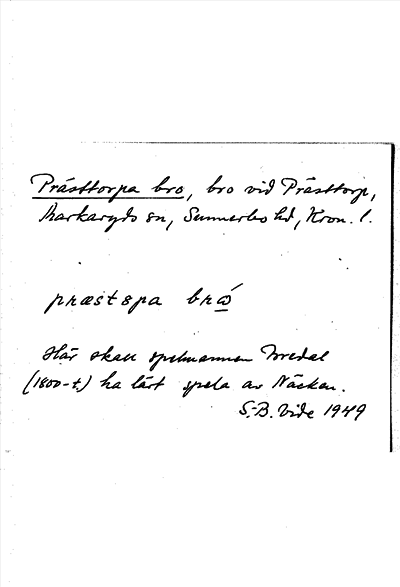 Prästtorpa bro, bro vid Prästtorp,
Markaryds sn, Sunnerbo hd, Kron. l.
præstəpa brώ̲
Här skall spelmannen Bredal
(1800-t.) ha lärt spela av Näcken.
S.-B. Vide 1949